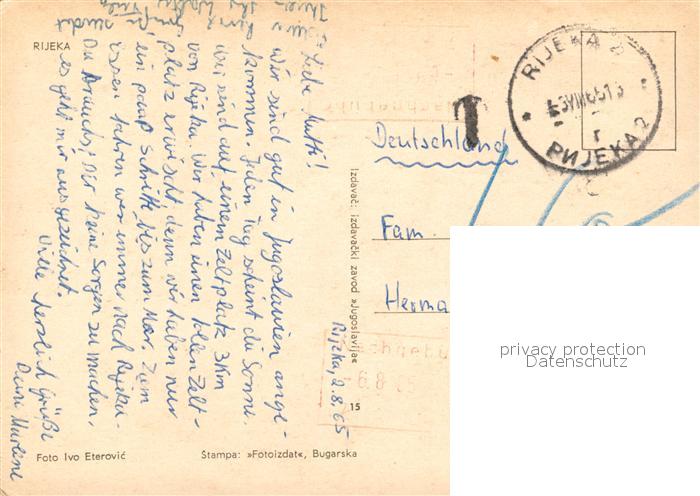 RIJEKA
Rijeka, 2.8.65
Liebe Mutti!
Wir sind gut in Jugoslavien ange-
kommen. Jeden Tag scheint die Sonne.
Wir sind auf einem Zeltplatz 3 km
von Rijeka. Wir haben einen tollen Zelt-
platz erwischt denn wir haben nur
ein paar Schritte bis zum Meer. Zum
Essen fahren wir immer nach Rijeka.
Du brauchst dir keine Sorgen zu machen,
es geht mir ausgezeichnet.
Viele herzlich Grüße
Deine Marlene
Foto Ivo Eterović
Štampa: »Fotoizdat«, Bugarska
Izdavač: izdavački zavod »Jugoslavija«
15
T
RIJEKA 2
РИЈЕКА 2
Deutschland
Fam.
Herma
6.8.65
privacy protection
Datenschutz